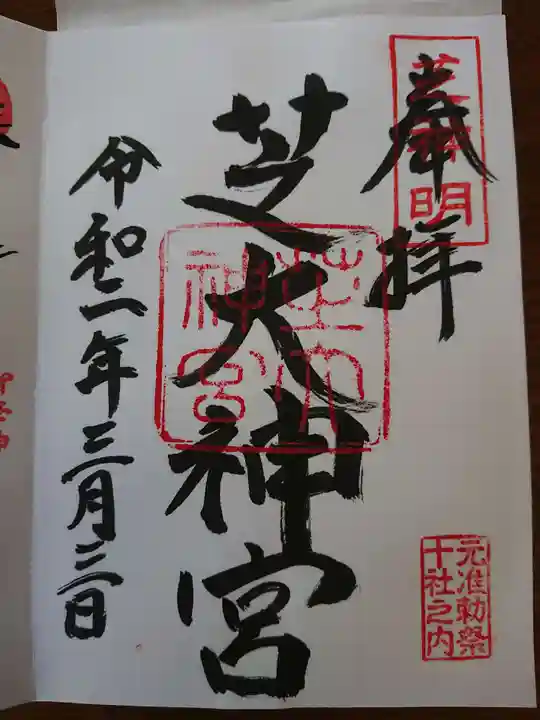 奉拝
芝神明
芝大神宮
芝大
神宮
令和二年三月三日
元准勅祭
十社之内